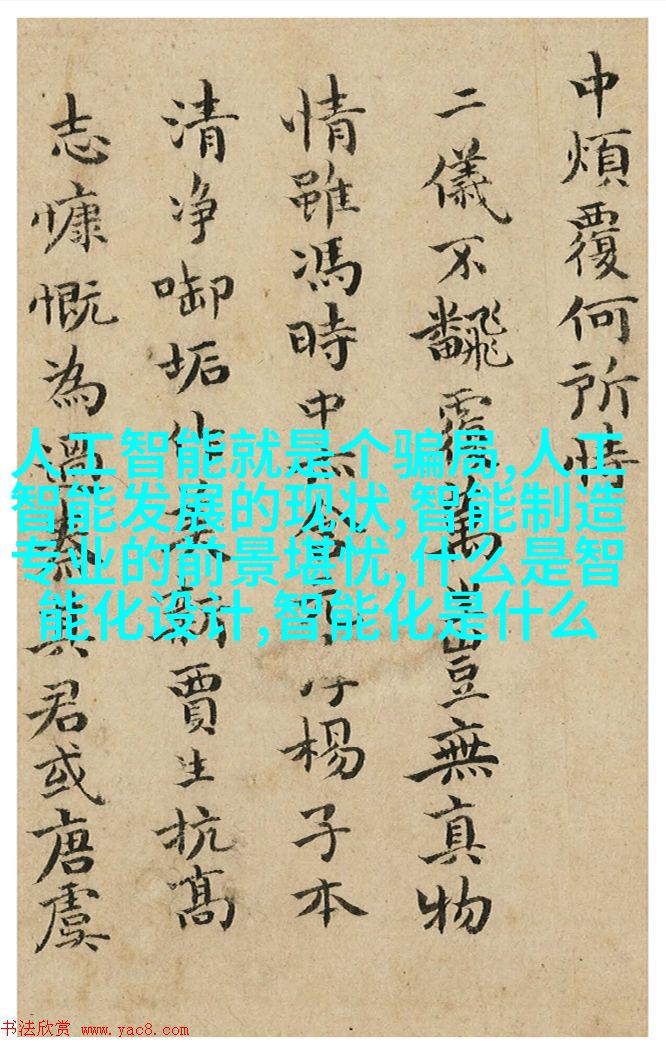 中煩覆何所
二儀不飜萬豈無真物
情雖馮時中楊子本
清净啣垢作賈生抗高
志慷慨為過秦君或唐虞
人工智能就是个骗局,人工
智能发展的现状,智能制造
专业的前景堪忧,什么是智
能化设计,智能化是什么
书法欣赏 www.yac8.com